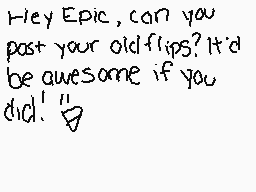 Hey Epic, can you
post your old flips? It'd
be awesome if you
did! "